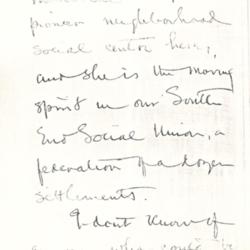 pioneer neighborhood
social centre here,
and she is the moving
spirit in our South
End Social Union, a
federation of a dozen
settlements.
I dont know of
who could be